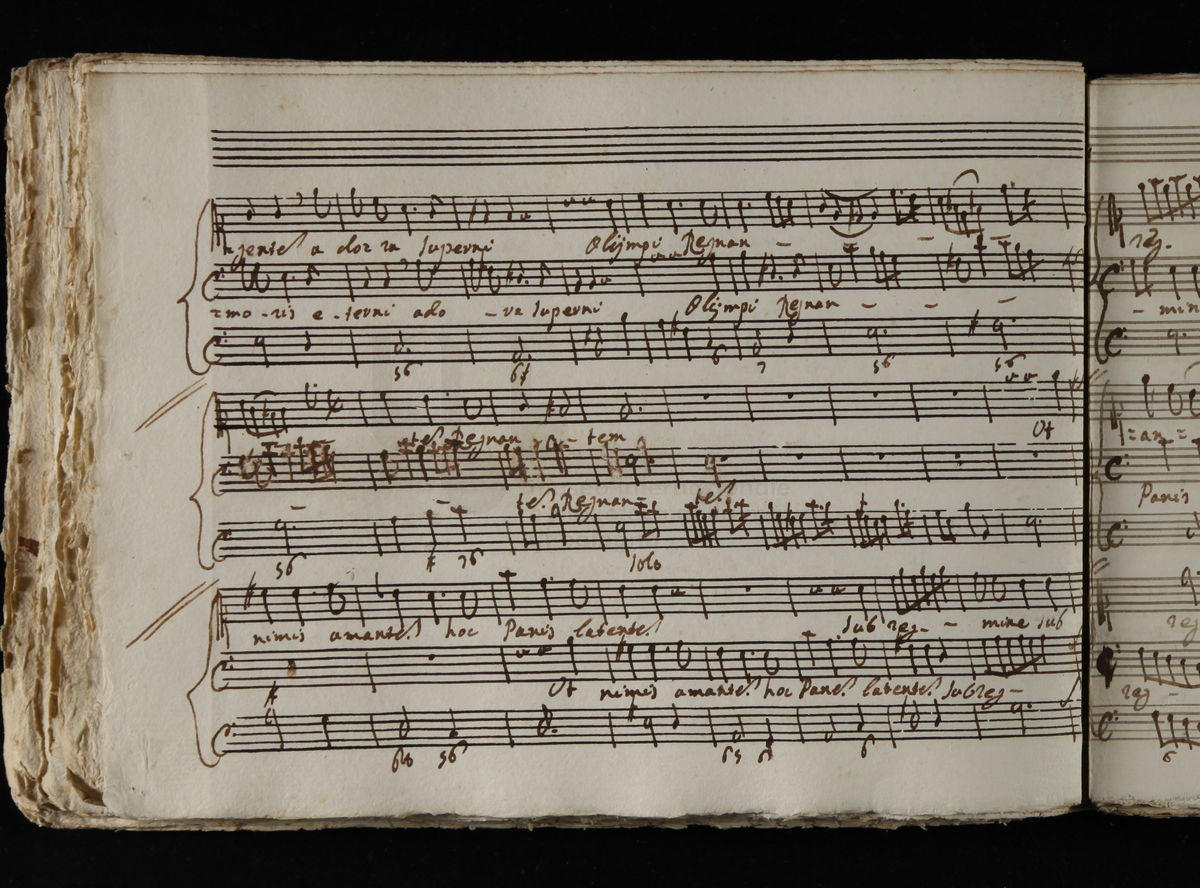 superni Olijmpi Regnan -
e-terni ado superni Olijmpi Regnan - - -
56 6# 6 7 56 56
Regnan - tem Ut
Regnan= tes
56 # 76 solo
nimis amantes hoc Panis latentes sub reg- - mine sub
Ut nimis amantes hoc Panes latentes sub reg-
56 65 6 6
reg.
- min
Panis
reg
reg -
6